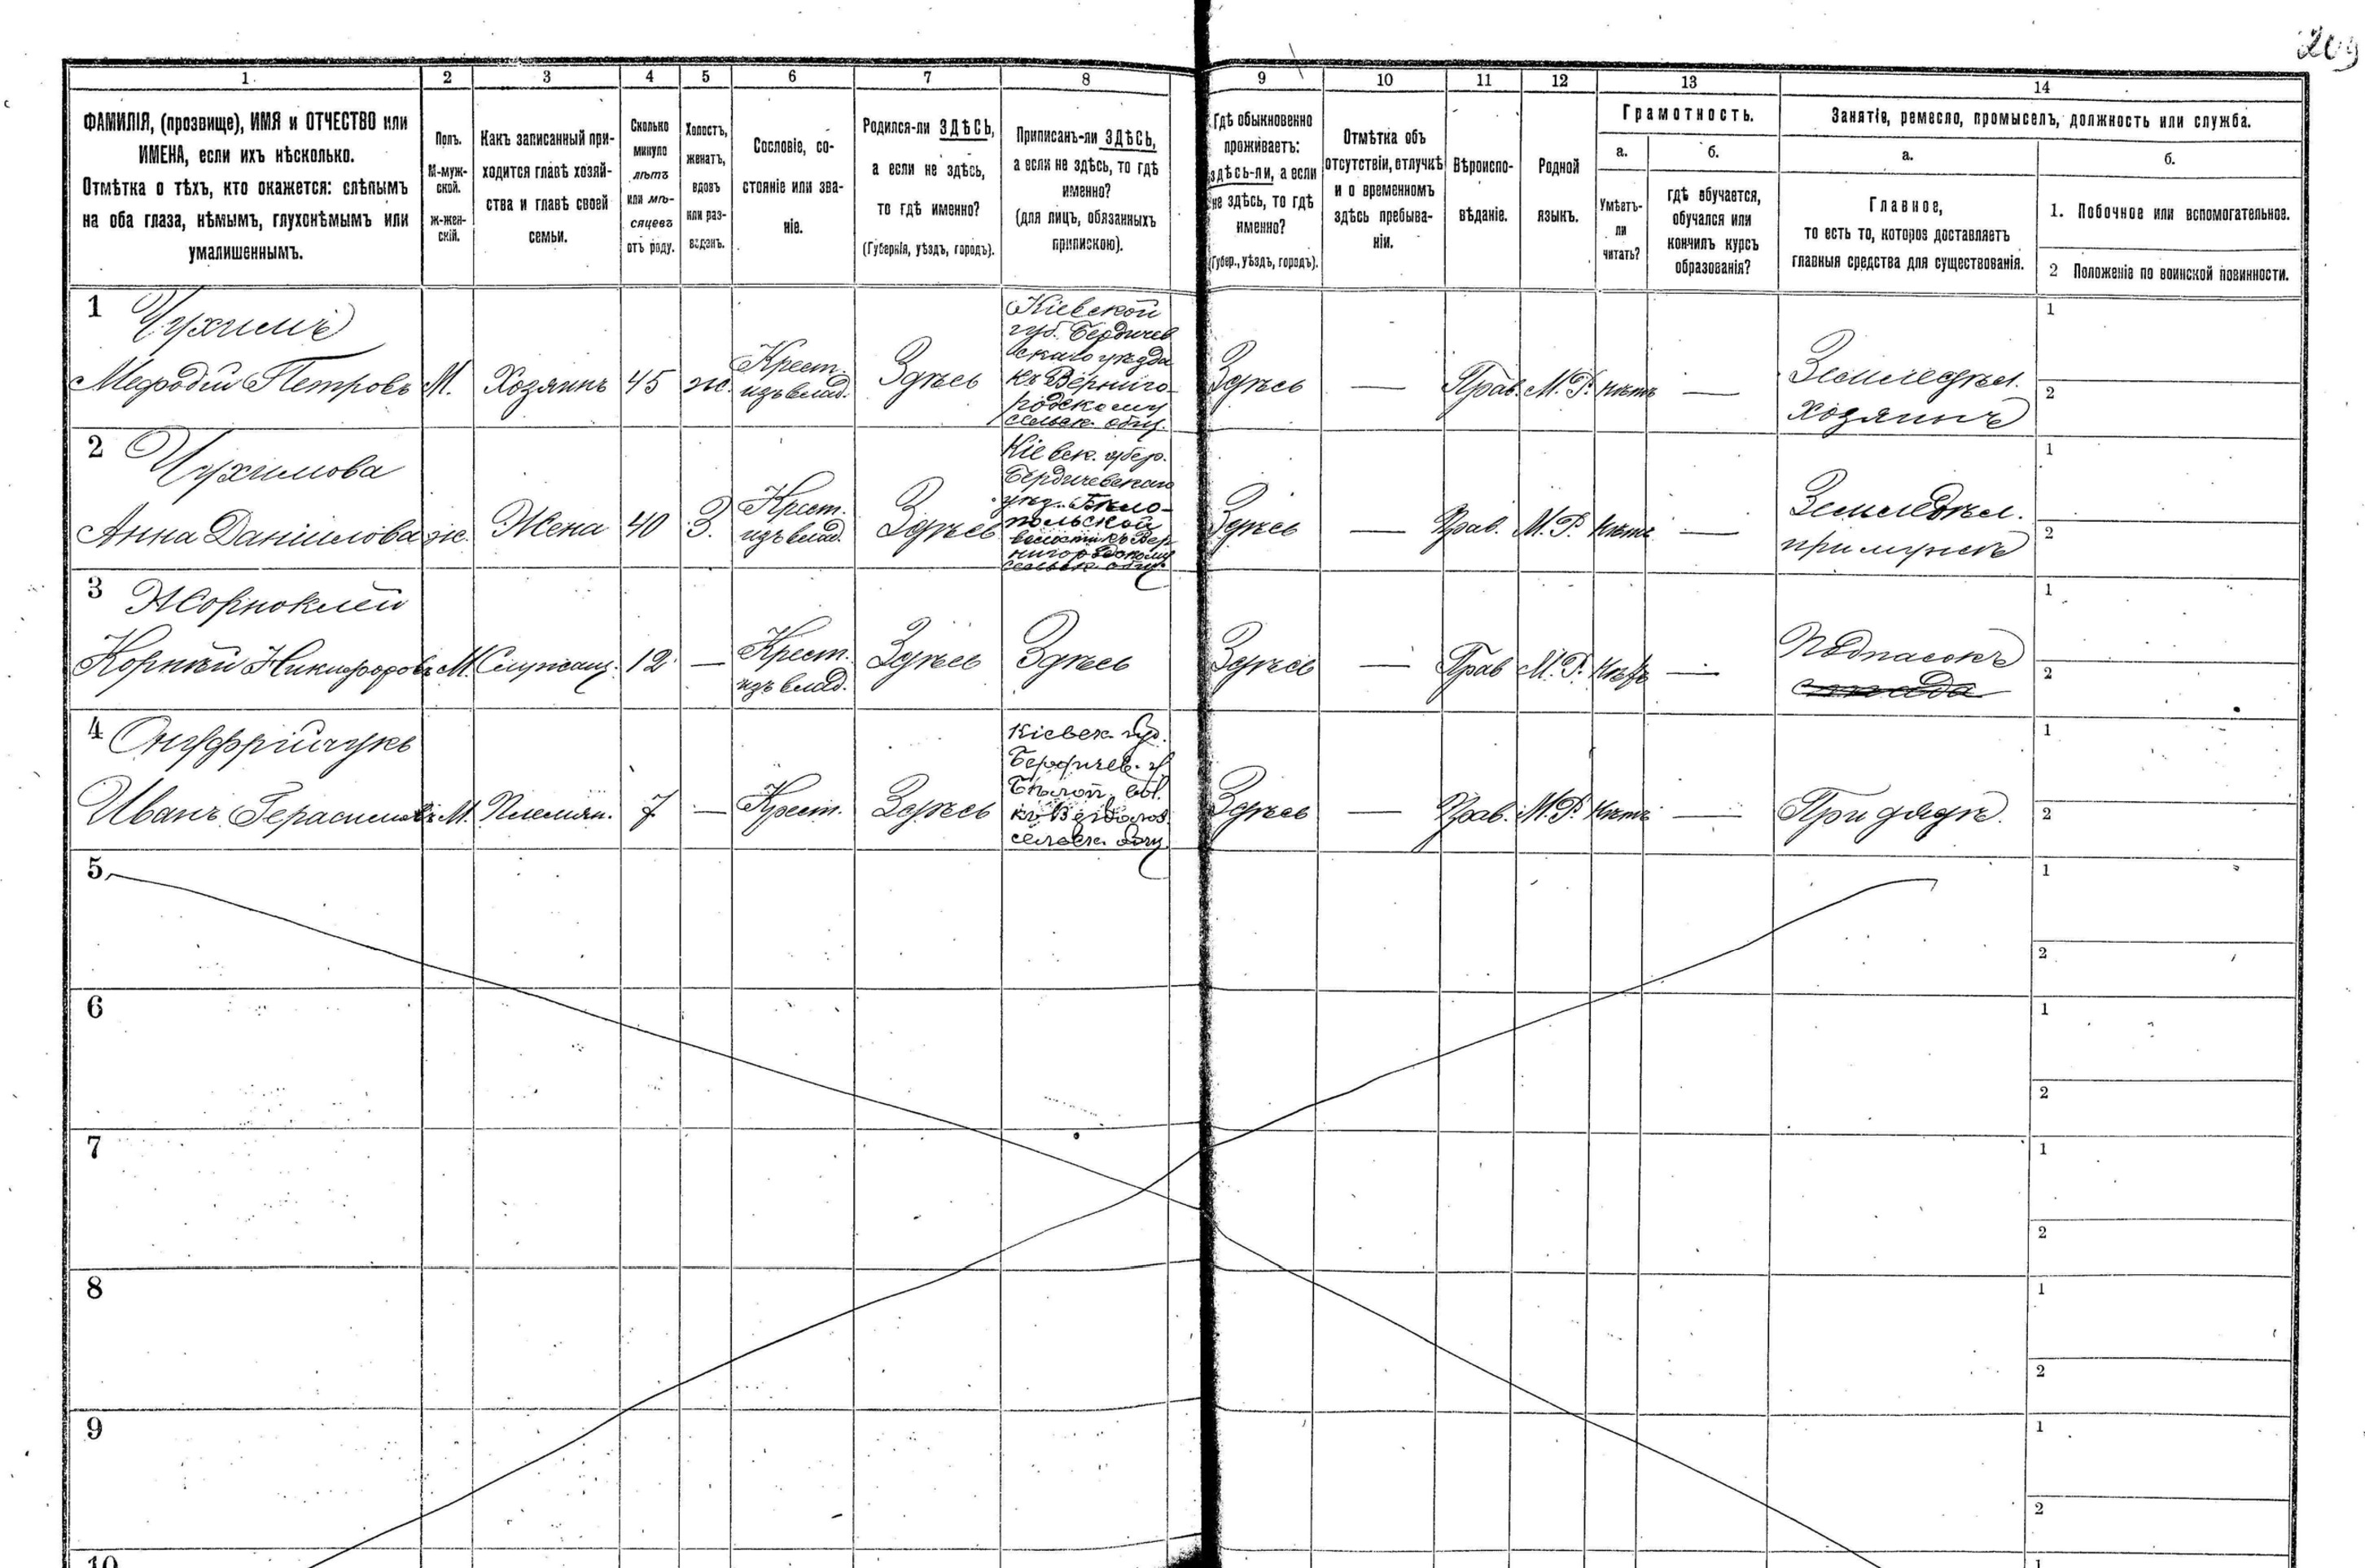 209
1
2
3
4
5
6
7
8
9
10
11
12
13
14
ФАМИЛІЯ, (прозвище), ИМЯ и ОТЧЕСТВО или
ИМЕНА, если ихъ нѣсколько.
Отмѣтка о тѣхъ, кто окажется: слѣпымъ
на оба глаза, нѣмымъ, глухонѣмымъ или
умалишеннымъ.
Полъ.
М-муж-
ской.
ж-жен-
скій.
Какъ записанный при-
ходится главѣ хозяй-
ства и главѣ своей
семьи.
Сколько
минуло
лѣтъ
или мѣ-
сяцевъ
отъ роду.
Холостъ,
женатъ,
вдовъ
или раз-
веденъ.
Сословіе, со-
стояніе или зва-
ніе.
Родился-ли ЗДѢСЬ,
а если не здѣсь,
то гдѣ именно?
(Губернія, уѣздъ, городъ).
Приписанъ-ли ЗДѢСЬ,
а если не здѣсь, то гдѣ
именно?
(для лицъ, обязанныхъ
припискою).
Гдѣ обыкновенно
проживаетъ:
здѣсь-ли, а если
не здѣсь, то гдѣ
именно?
(Губер., уѣздъ, городъ).
Отмѣтка объ
отсутствіи, отлучкѣ
и о временномъ
здѣсь пребыва-
ніи.
Вѣроиспо-
вѣданіе.
Родной
языкъ.
Грамотность.
а.
Умѣетъ-
ли
читать?
б.
гдѣ обучается,
обучался или
кончилъ курсъ
образованія?
Занятіе, ремесло, промыселъ, должность или служба.
а.
Главное,
то есть то, которое доставляетъ
главныя средства для существованія.
б.
1. Побочное или вспомогательное.
2 Положеніе по воинской повинности.
1 Чухимъ
Мефодій Петровъ М. Хозяинъ 45 ж. Крест. Здѣсь
изъ влад.
Кіевской
губ. Бердичев
скаго уѣзда
къ Верниго-
родскому
сельск. общ.
Здѣсь — Прав. М. Р. нѣтъ — Земледѣл.
хозяинъ
1
2
2 Чухимова
Анна Даніилова ж. Жена 40 З. Крест. Здѣсь
изъ влад.
Кіевск. губер.
Бердичевскаго
уѣз. Бѣло-
польской
волости къ Вер-
нигородскому
сельск. общ.
Здѣсь — Прав. М. Р. нѣтъ — Земледѣл.
при мужѣ
1
2
3 Жорноклей
Корнѣй Никифоровъ М. Служащ. 12 — Крест. Здѣсь Здѣсь
изъ влад.
Здѣсь — Прав М. Р. нѣтъ — Подпасокъ
1
2
4 Онуффрійчукъ
Иванъ Герасимовъ М. Племян. 7 — Крест. Здѣсь
Кіевск. губ.
Бердичев. у
Бѣлоп. вол.
сельск. общ.
Здѣсь — Прав. М. Р. нѣтъ — При дядѣ.
1
2
5
1
2
6
1
2
7
1
2
8
1
2
9
1
2
10
1